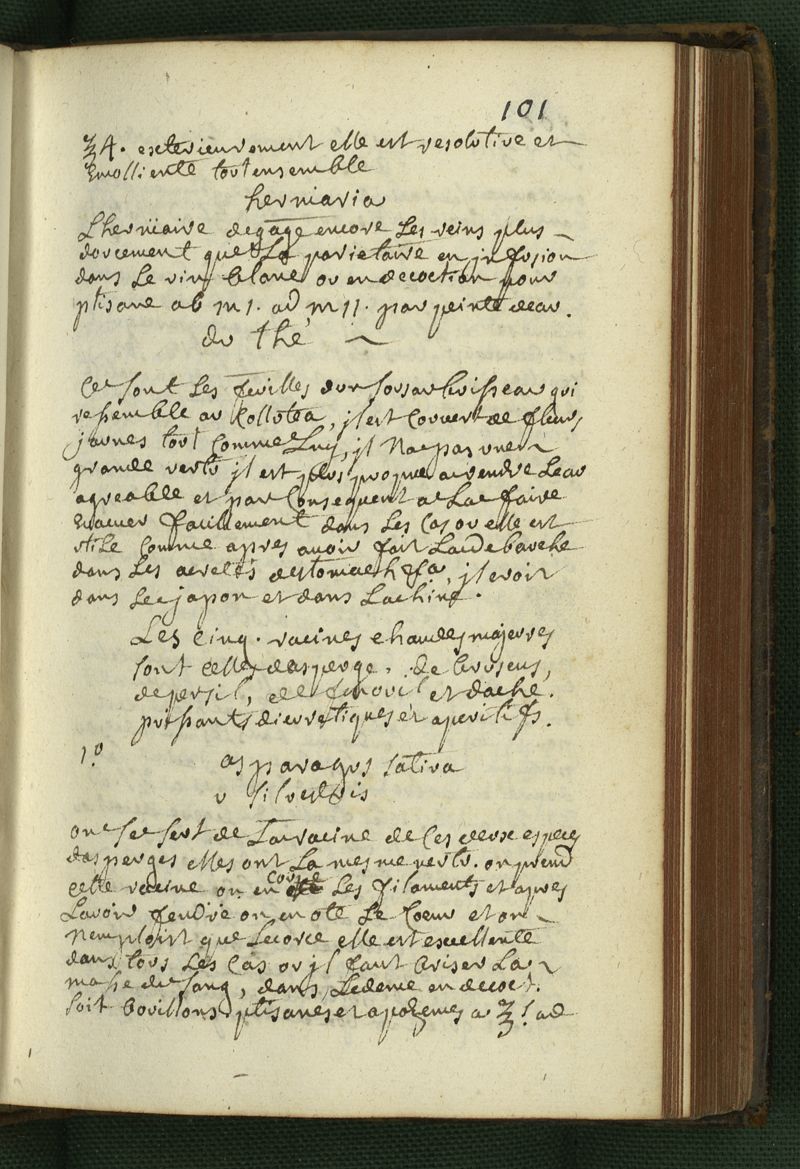 101
℥4. exterieurement elle est resolutive et
Emolliente tout ensemble
herniaria
Lherniaire degage encore Les reins plus
doucement que La parietaire en infusion
dans Le vin blanc ou en decoction pour
ptisane ab m 1. ad m 11. par peinte deau.
du thé
Ce sont Les feuilles dun sousarbrisseau qui
ressemble au Collutea, jl est Couvert de fleurs
jaunes tout Comme Luy, jl Na pas une
grande vertu jl est plus propre a rendre Leau
agreable et par Consequent a La faire
Evacuer facilement dans Les Cas ou elle est
utile Comme apres avoir fait La debauche
dans Les acretés destomach, jl croit
dans Le japon et dans La chine.
Les cinq. racines chaudes majeures
sont celles dasperge, de bruscus,
de persil, de fenouil et dache.
puissants diuretiques et aperitifs.
1.º
asparagus sativa
v silvestris
on Se Sert de La racine de Ces deux especes
dasperges elles ont La mesme vertu. on prend
cette racine on en coupe Les filaments et apres
Lavoir fendue on en ote Le Coeur et on
Nemploist que Lecorce elle est excellente
dans tous Les Cas ou jl faut briser La
masse du sang, dans Ledeme en decoct.
soit bouillons ptisanes et apozemes a ℥ 1. ad